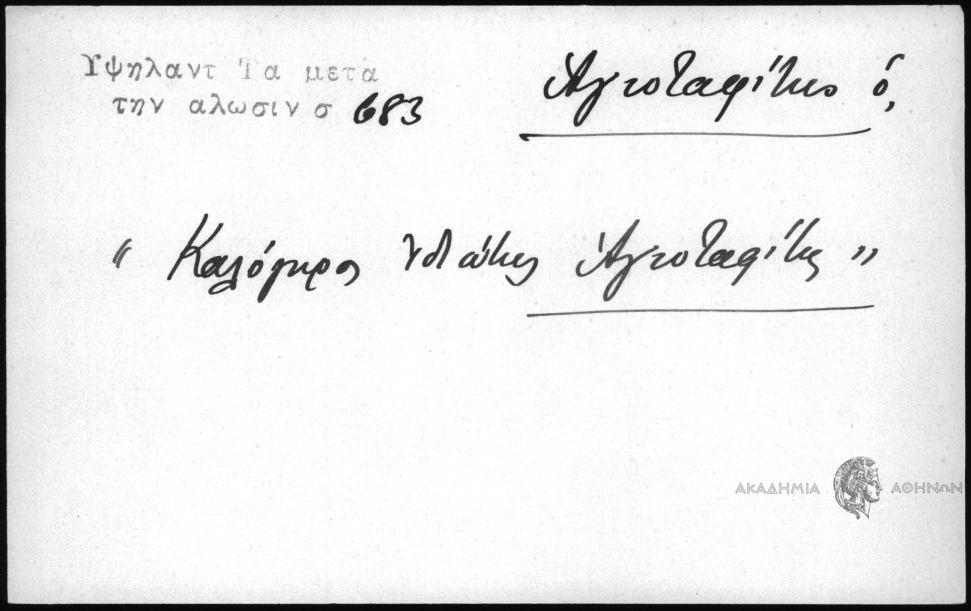 Υψηλαντ Τα μετα
την αλωσιν σ 683
Ἁγιοταφίτης ὁ,
“ Καλόγηρος ἰδιώτης Ἁγιοταφίτης ”
ΑΚΑΔΗΜΙΑ ΑΘΗΝΩΝ